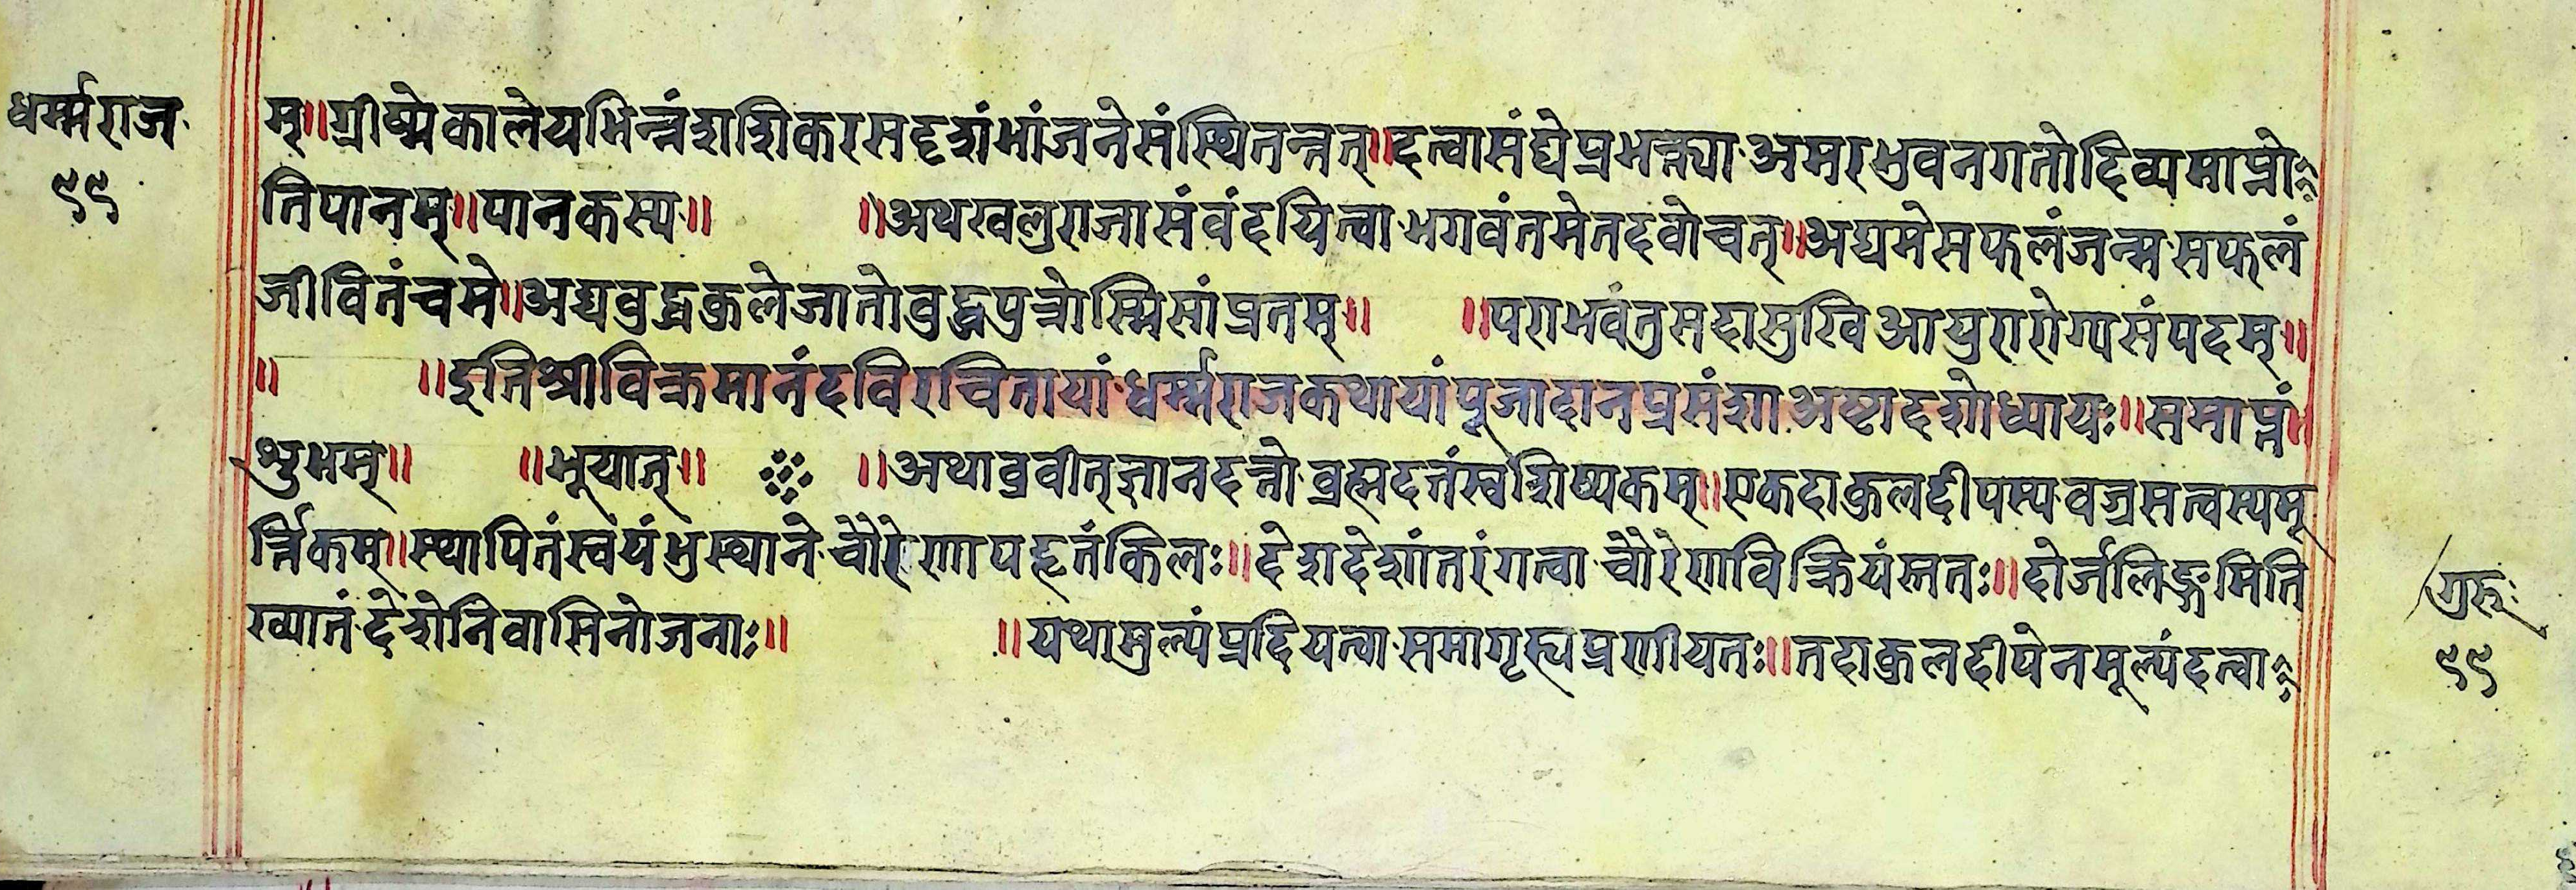 धर्म्मराज
९९
म्॥ग्रीष्मेकालेयभिन्नंशशिकरसदृशंभांजनेसंस्थितन्नत्॥दत्वासंघेप्रभक्त्याअमरभुवनगतोदिव्यमाप्नो
तिपानम्॥पानकस्य॥ ॥अथखलुराजासंवंदयित्वाभगवंतमेतदवोचत्॥अद्यमेसफलंजन्मसफलं
जीवितंचमे॥अद्यबुद्धकुलेजातोबुद्धपुत्रोस्मिसांप्रतम्॥ ॥पराभवंतुमदासुखिआयुरारोग्यसंपदम्॥
॥ ॥इतिश्रीविक्रमानंदविरचितायांधर्म्मराजकथायांपूजादानप्रसंशाअष्टादशोध्यायः॥समाप्तं॥
शुभम्॥ ॥भूयात्॥ ॥अथाब्रवीत्ज्ञानदत्तोब्रह्मदत्तंस्वशिष्यकम्॥एकदाकुलदीपस्यवज्रसत्वस्यमू
र्त्तिकम्॥स्थापितंस्वयंभुस्थानेचौरेणापहृतंकिलः॥देशदेशांतरंगत्वाचौरेणविक्रियंस्ततः॥दोर्जलिङ्गमिति
ख्यातंदेशेनिवासिनोजनाः॥ ॥यथामुल्यंप्रदियत्वासमागृह्यप्रणीयतः॥तदाकुलदीपेनमूल्यंदत्वा
गुरूः
९९